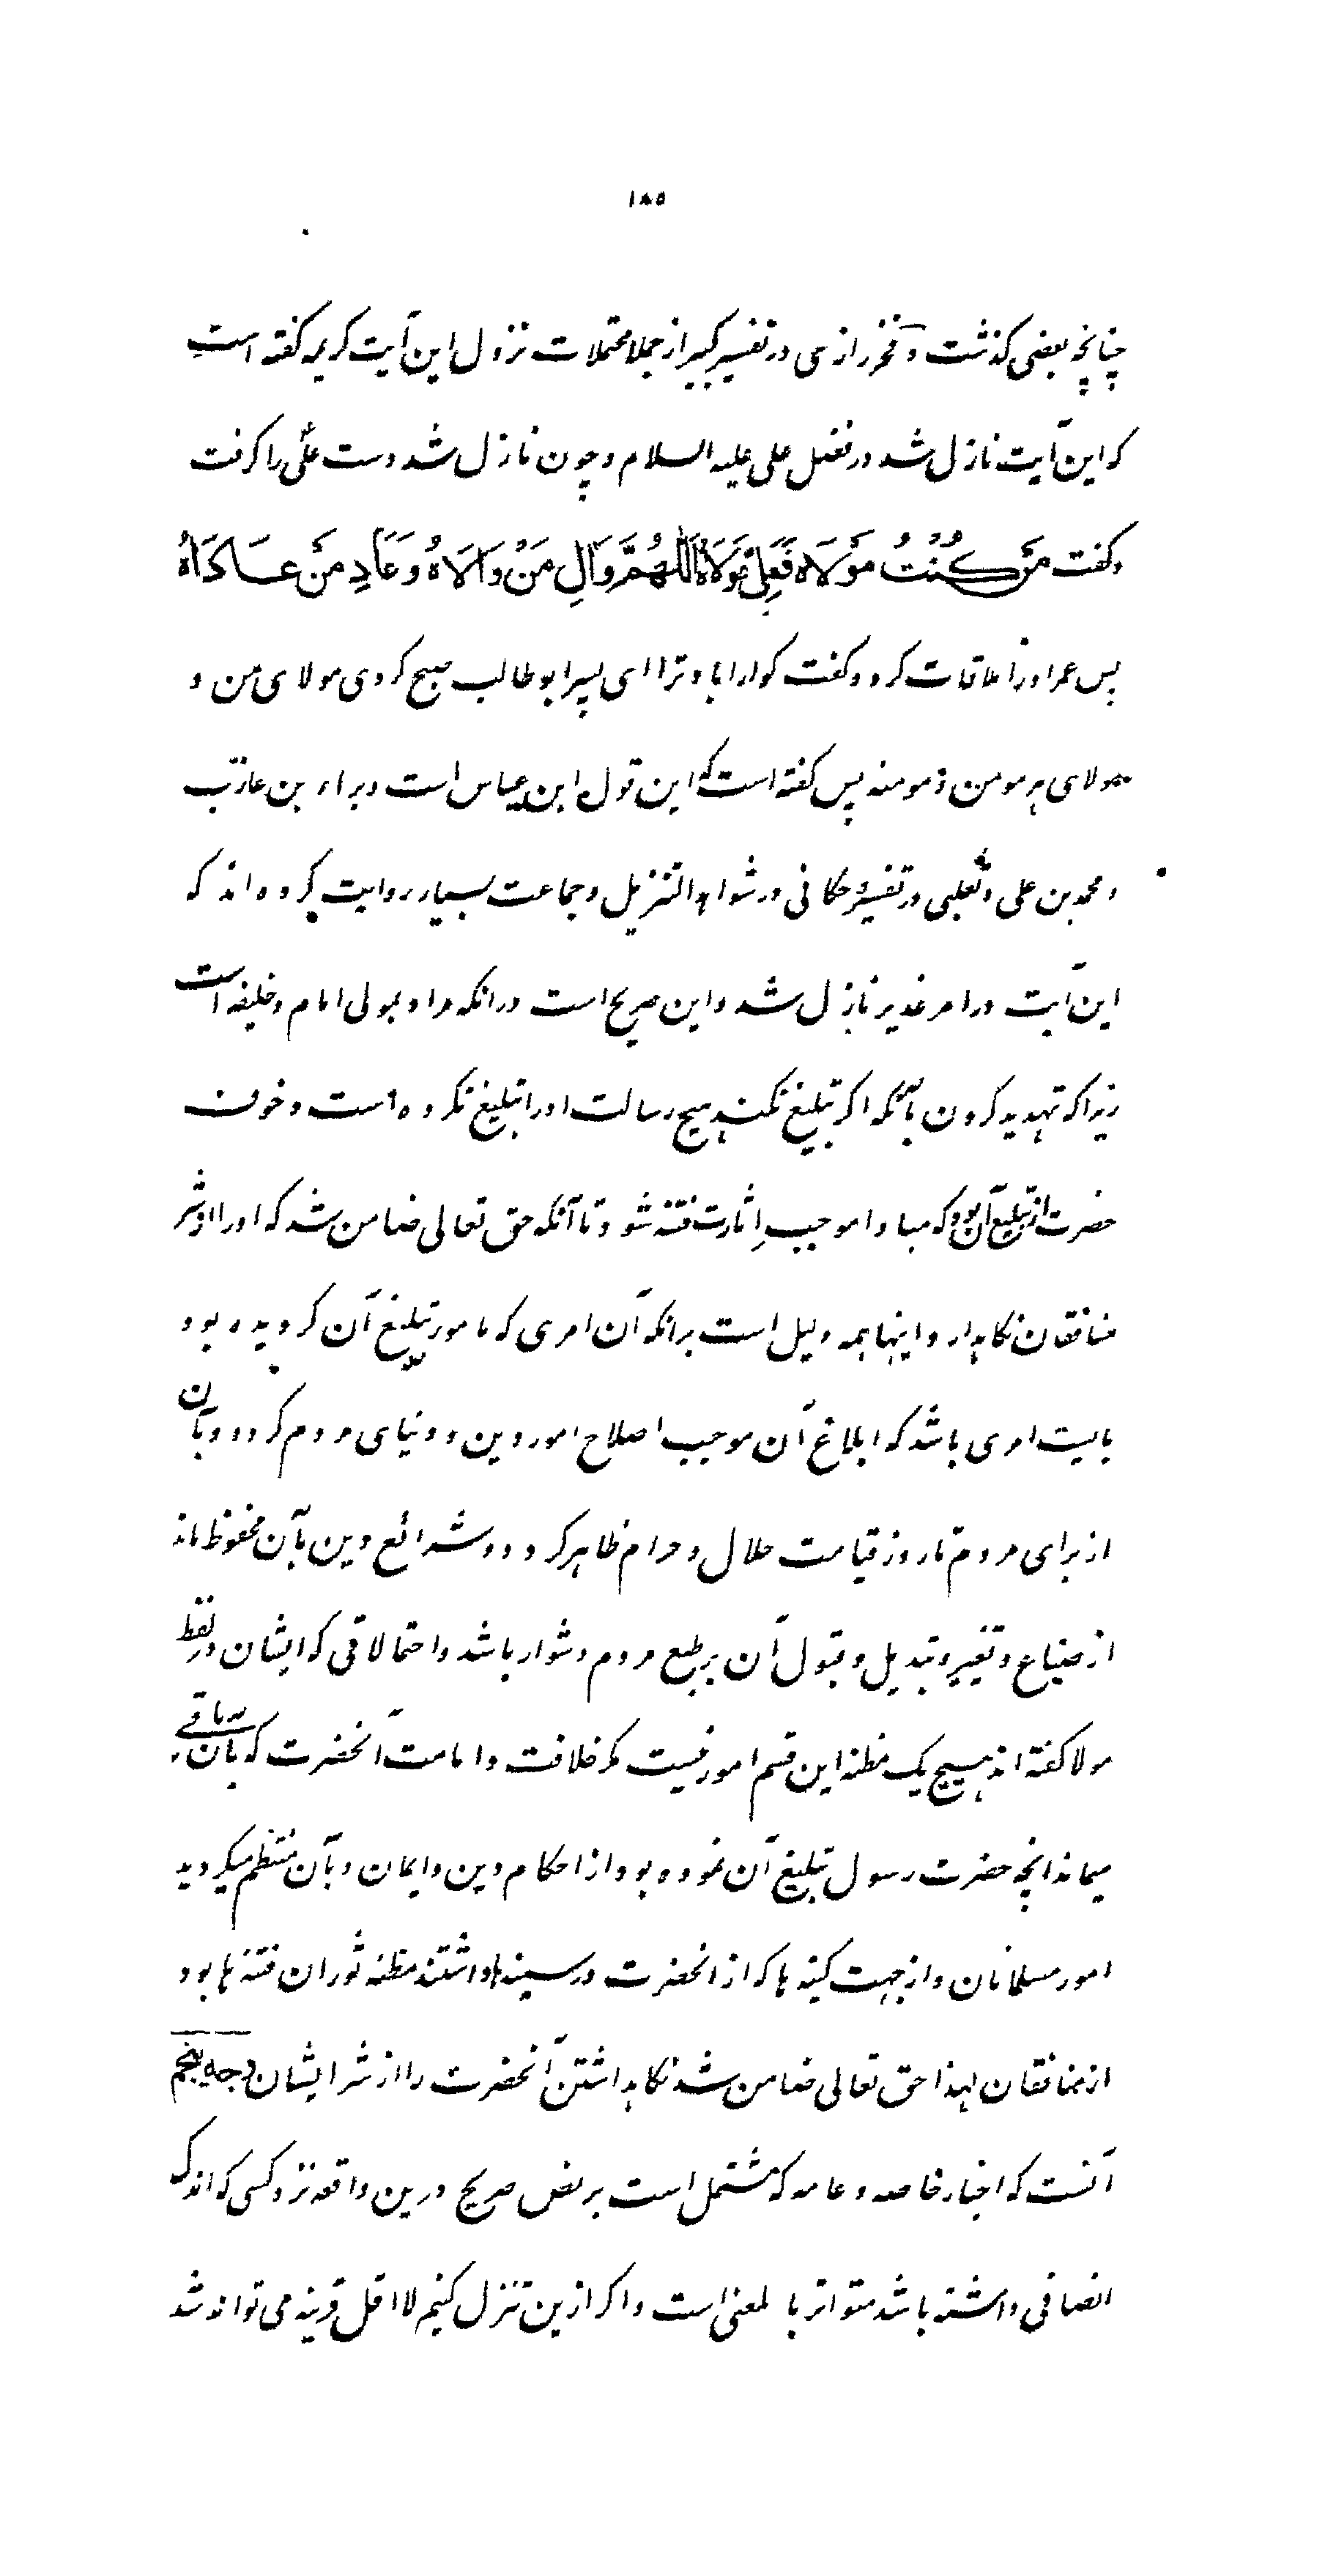 ۱۸۵
چنانچه بعضی کذشت و فخر رازی در تفسیر کبیر از جملا محتملات نزول این آیت کریمه کفته است
که این آیت نازل شد در فضل علی علیه السلام و چون نازل شد دست علی را کرفت
و کفت مَنْ كُنْتُ مَوْلَاه فَعَلِيٌّ مَوْلَاهُ اَللّٰهُمَّ وَالِ مَنْ وَالَاهُ وَعَادِ مَنْ عَادَاهُ
پس عمر او را ملاقات کرد و کفت کوارا باد ترا ای پسر ابو طالب صبح کردی مولای من و
مولای هر مومن و مومنه پس کفته است که این قول ابن عباس است و براء بن عازب
و محمد بن علی و ثعلبی در تفسیر و حکانی در شواهد التنزیل و جماعت بسیار روایت کرده اند که
این آیت در امر غدیر نازل شد و این صریح است در انکه مراد بمولی امام و خلیفه است
زیرا که تهدید کردن بآنکه اکر تبلیغ نکند هیچ رسالت او را تبلیغ نکرده است و خوف
حضرت از تبلیغ آن بود که مبادا موجبِ اِثارت فتنه شود تا آنکه حق تعالی ضامن شد که او را از شر
منافقان نکاهدار و اینها همه دلیل است بر انکه آن امری که مامور تبلیغ آن کردیده بود
بایست امری باشد که ابلاغ آن موجب اصلاح امور دین و دنیای مردم کردد و بآن
از برای مردم تا روز قیامت حلال و حرام ظاهر کردد و شرائع دین بآن محفوظ ماند
از ضیاع و تغییر و تبدیل و قبول آن بر طبع مردم دشوار باشد و احتمالاتی که ایشان در لفظ
مولا کفته اند هیچ یک مظنه این قسم امور نیست مکر خلافت و امامت آنحضرت که بآن باقی
میماند انچه حضرت رسول تبلیغ آن نموده بود از احکام دین و ایمان و بآن منتظم میکردید
امور مسلمانان و از جهت کینه ها که از انحضرت در سینها داشتند مظنه ثوران فتنه ها بود
از منافقان لهذا حق تعالی ضامن شد نکاهداشتن آنحضرت را از شر ایشان وجه پنجم
آنست که اخبار خاصه و عامه که مشتمل است بر نص صریح درین واقعه نزد کسی که اندک
انصافی داشته باشد متواتر با لمعنی است و اکر ازین تنزل کنیم لا اقل قرینه می تواند شد